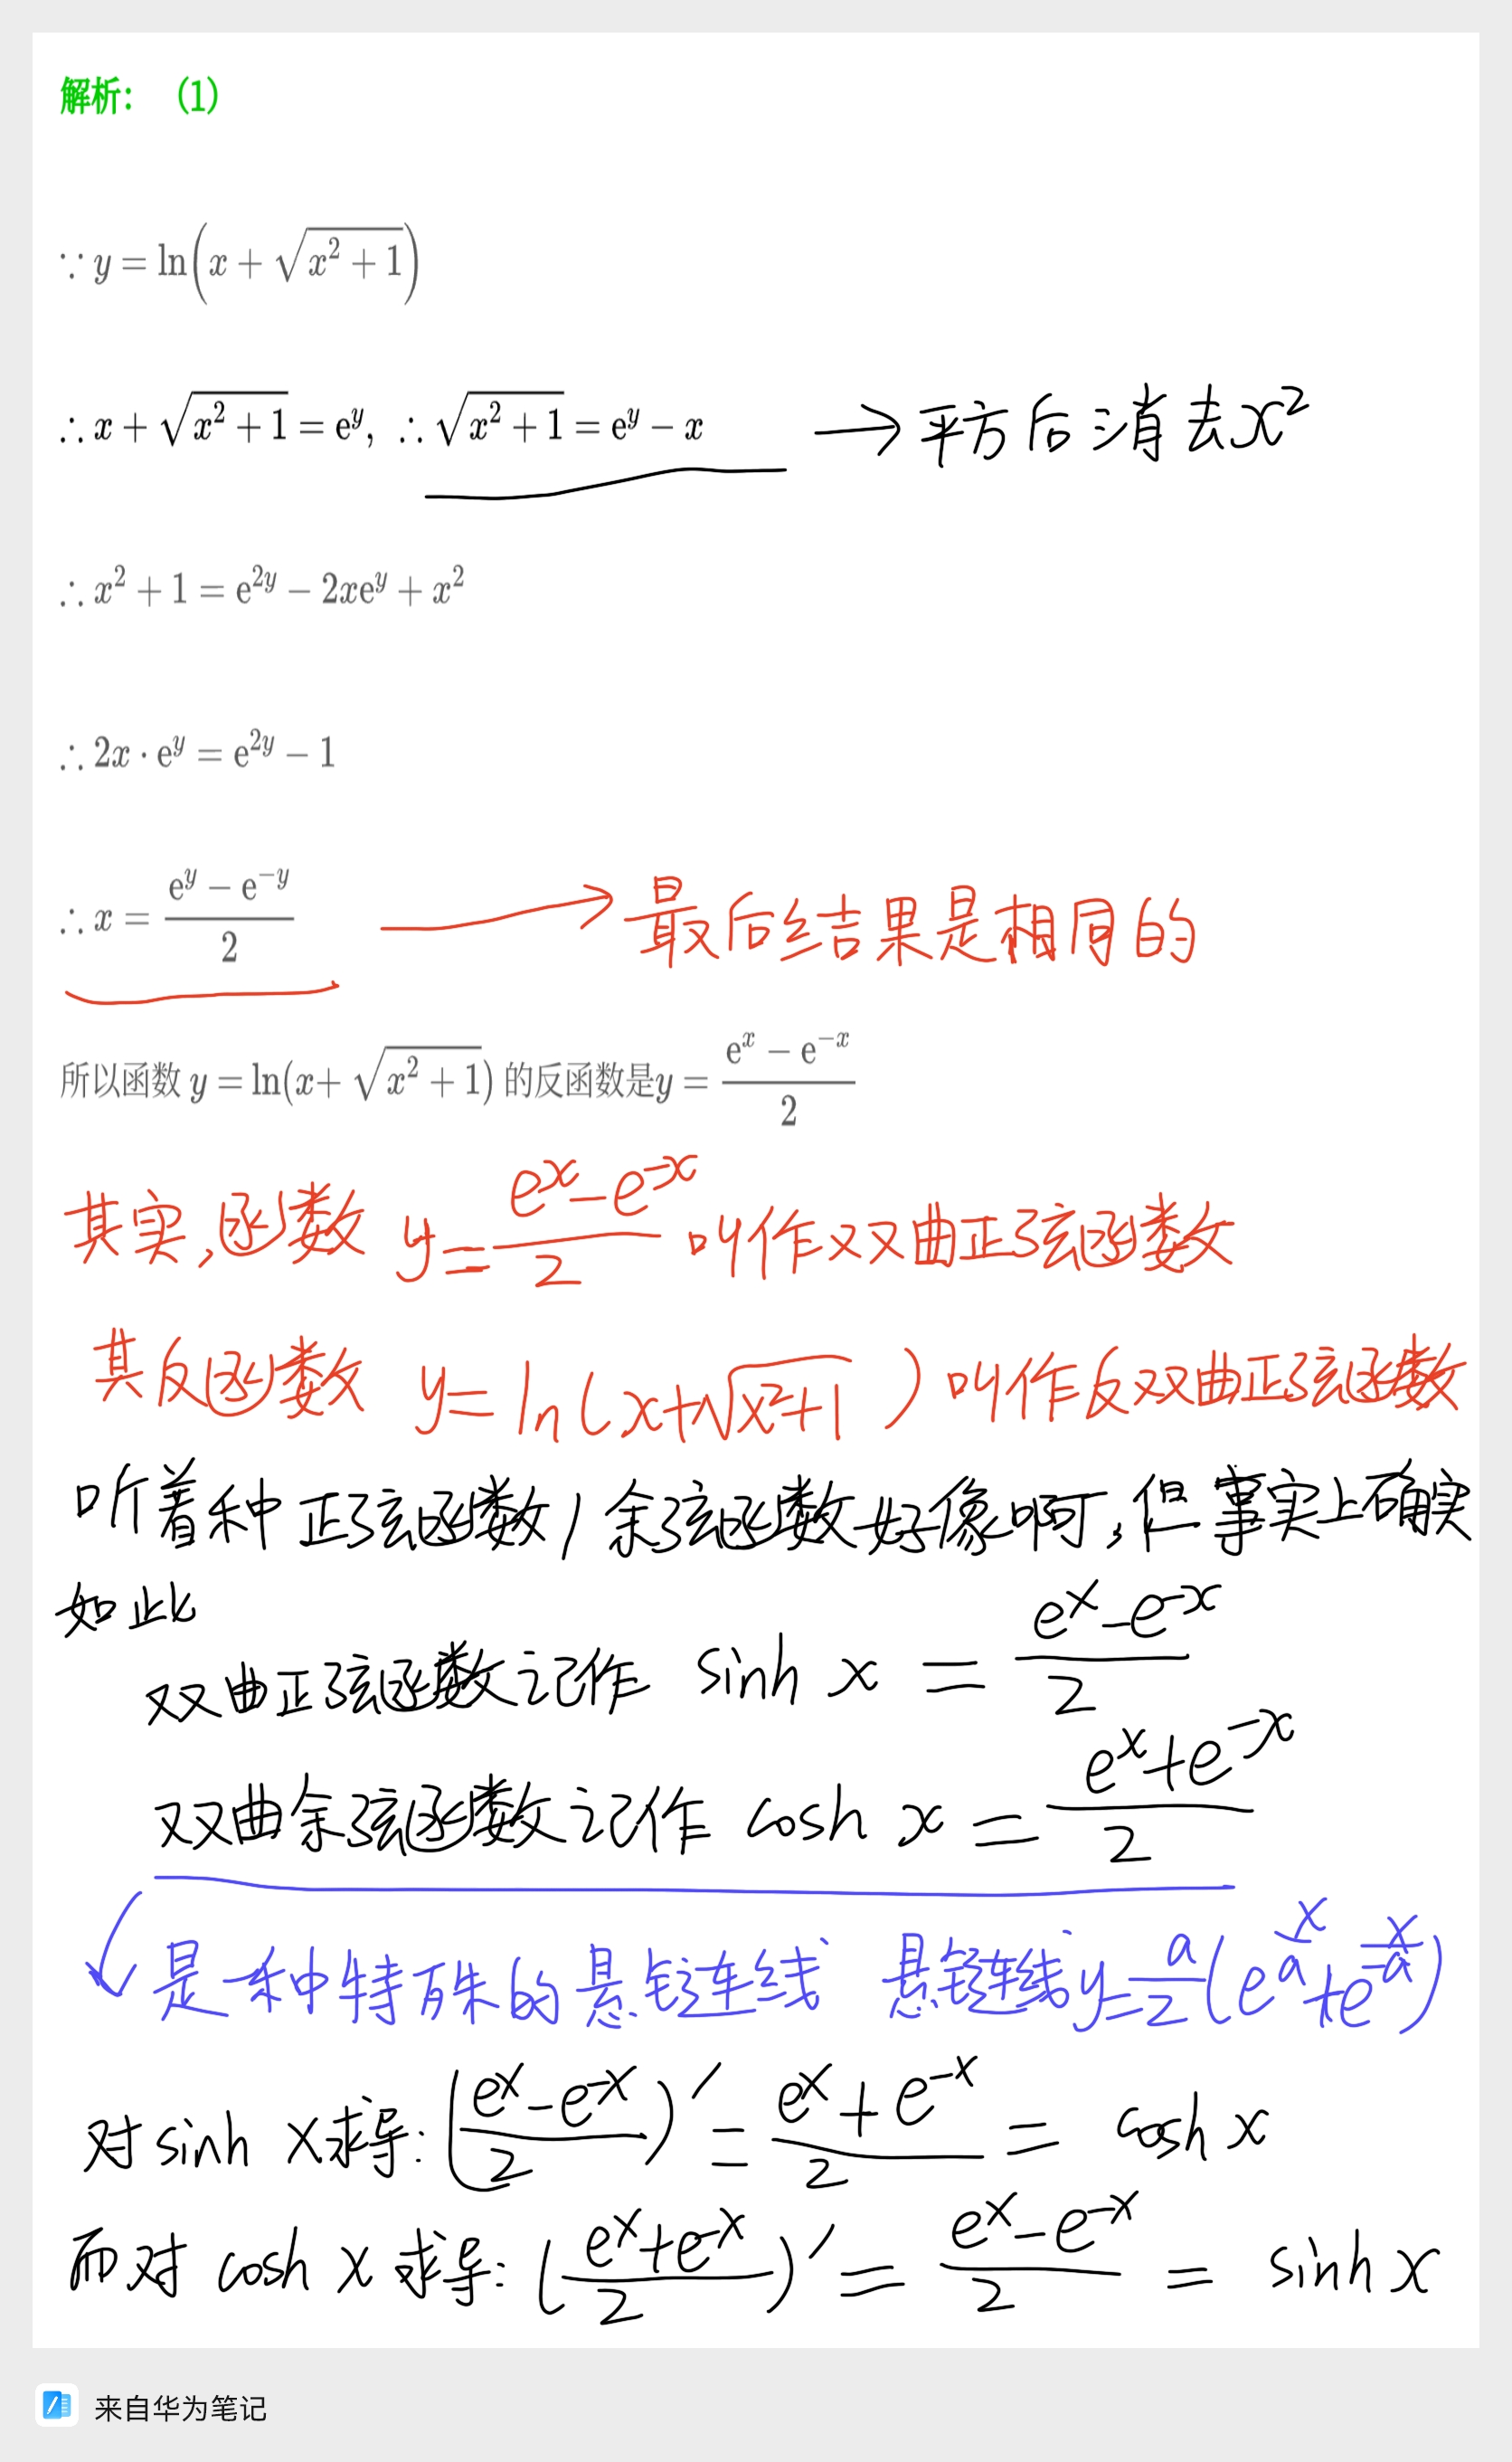 解析： （1）
∵ y = ln(x + √(x² + 1))
∴ x + √(x² + 1) = e^y, ∴ √(x² + 1) = e^y − x → 平方后消去x²
∴ x² + 1 = e^(2y) − 2xe^y + x²
∴ 2x · e^y = e^(2y) − 1
∴ x = (e^y − e^(−y))/2 → 最后结果是相同的
所以函数 y = ln(x+ √(x² + 1)) 的反函数是y = (e^x − e^(−x))/2
其实，函数 y = (e^x − e^(−x))/2 叫作双曲正弦函数
其反函数 y = ln(x+√(x²+1)) 叫作反双曲正弦函数
听着和中正弦函数/余弦函数好像啊，但事实上确实
如此
双曲正弦函数记作 sinh x = (e^x − e^(−x))/2
双曲余弦函数记作 cosh x = (e^x + e^(−x))/2
是一种特殊的悬链线 悬链线y = a/2 (e^(x/a) + e^(−x/a))
对 sinh x求导: ((e^x − e^(−x))/2)′ = (e^x + e^(−x))/2 = cosh x
而对 cosh x 求导: ((e^x + e^(−x))/2)′ = (e^x − e^(−x))/2 = sinh x
来自华为笔记